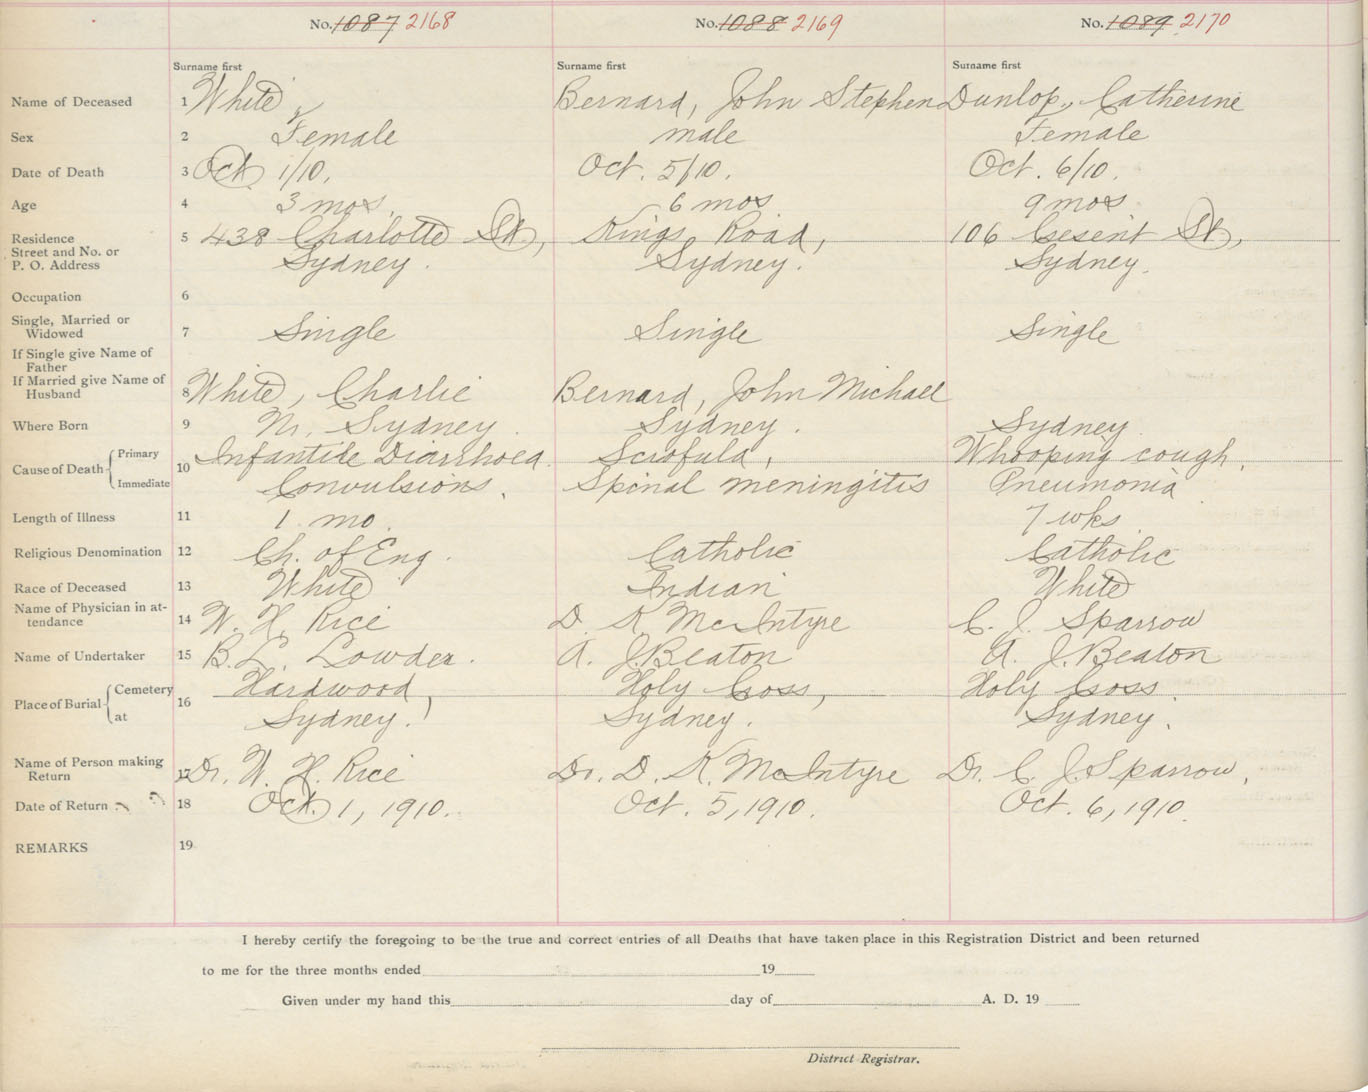 No. 1087 2168 No. 1088 2169 No. 1089 2170
Surname first Surname first Surname first
Name of Deceased 1 White, Bernard, John Stephen Dunlop, Catherine
Sex 2 Female male Female
Date of Death 3 Oct 1/10. Oct. 5/10. Oct. 6/10.
Age 4 3 mos. 6 mos 9 mos
Residence 5 438 Charlotte St., Kings Road, 106 Cresent St.,
Street and No. or
P. O. Address Sydney. Sydney. Sydney.
Occupation 6
Single, Married or
Widowed 7 Single Single Single
If Single give Name of
Father
If Married give Name of
Husband 8 White, Charlie Bernard, John Michael
Where Born 9 N. Sydney. Sydney. Sydney
Cause of Death Primary 10 Infantile Diarrhoea. Scrofula, Whooping cough,
Immediate Convulsions. Spinal meningitis Pneumonia
Length of Illness 11 1 mo. 7 wks
Religious Denomination 12 Ch. of Eng. Catholic Catholic
Race of Deceased 13 White Indian White
Name of Physician in at-
tendance 14 W. H. Rice D. K McIntyre C. J. Sparrow
Name of Undertaker 15 B. L. Lowden. A. J. Beaton A. J. Beaton
Place of Burial Cemetery 16 Hardwood, Holy Cross, Holy Cross.
at Sydney. Sydney. Sydney.
Name of Person making
Return 17 Dr. W. H. Rice Dr. D. K McIntyre Dr. C. J. Sparrow,
Date of Return 18 Oct. 1, 1910. Oct. 5, 1910. Oct. 6, 1910.
REMARKS 19
I hereby certify the foregoing to be the true and correct entries of all Deaths that have taken place in this Registration District and been returned
to me for the three months ended 19
Given under my hand this day of A. D. 19
District Registrar.